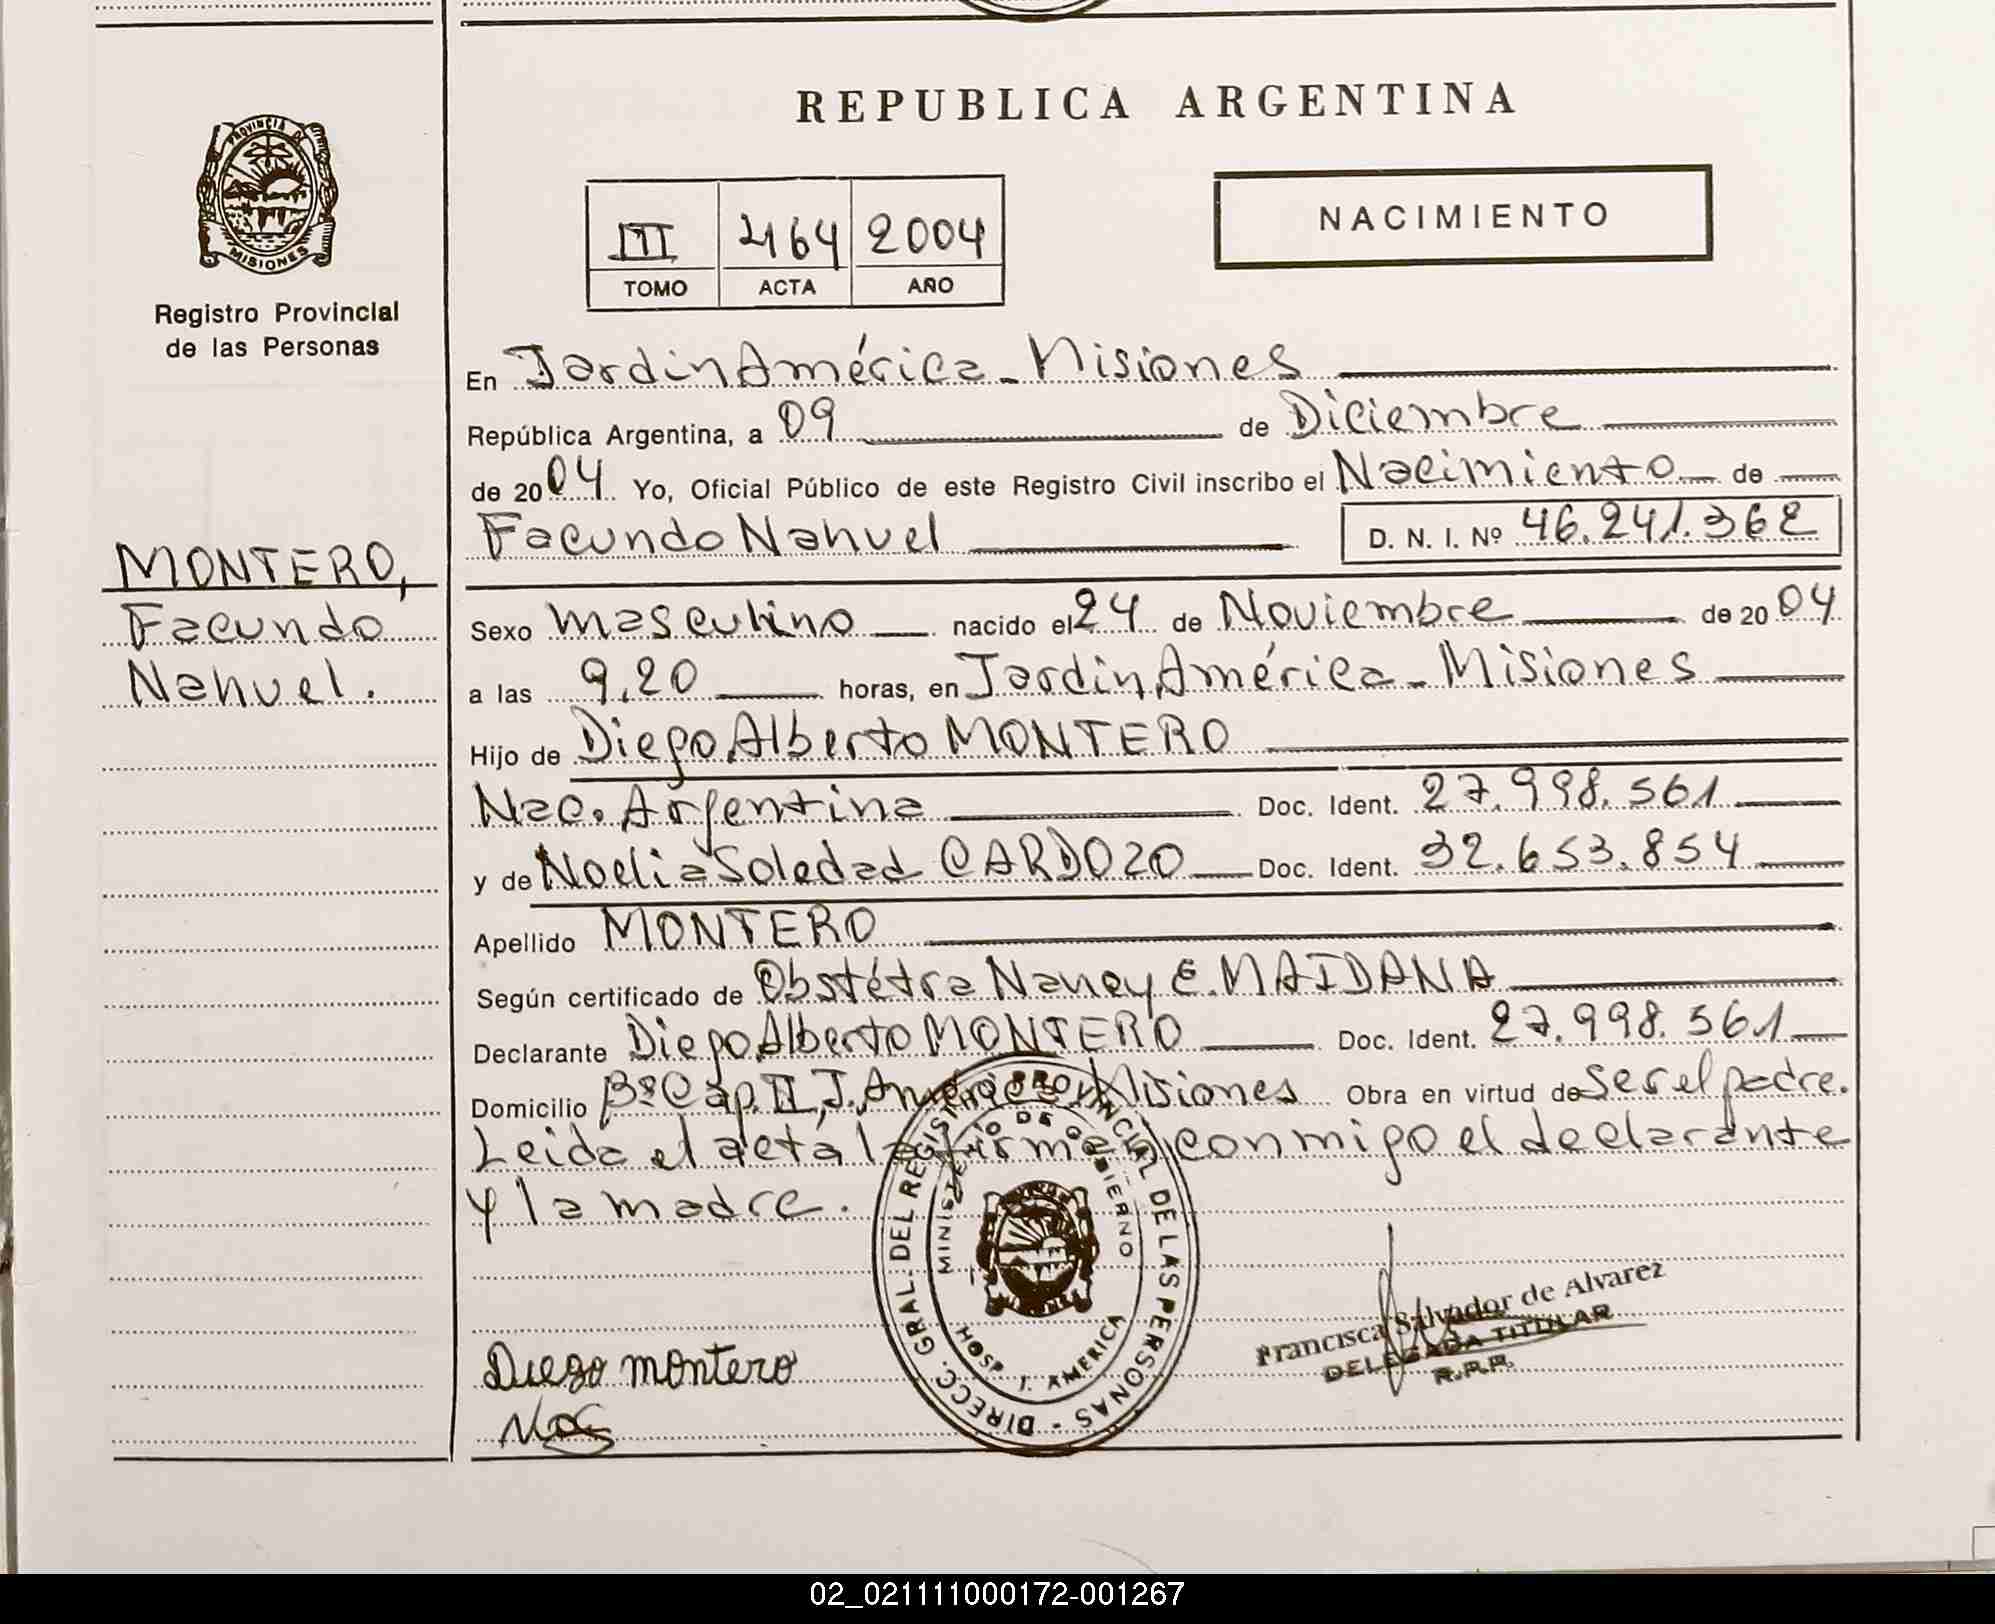 PROVINCIA DE
MISIONES
Registro Provincial
de las Personas
MONTERO,
Facundo
Nahuel.
REPUBLICA ARGENTINA
III 464 2004
TOMO ACTA AÑO
NACIMIENTO
En Jardin América - Misiones
República Argentina, a 09 de Diciembre
de 2004 Yo, Oficial Público de este Registro Civil inscribo el Nacimiento de
Facundo Nahuel D. N. I. Nº 46.241.362
Sexo masculino nacido el 24 de Noviembre de 2004
a las 9,20 horas, en Jardin América - Misiones
Hijo de Diego Alberto MONTERO
Nac. Argentina Doc. Ident. 27.998.561
y de Noelia Soledad CARDOZO Doc. Ident. 32.653.854
Apellido MONTERO
Según certificado de Obstétra Nancy E. MAIDANA
Declarante Diego Alberto MONTERO Doc. Ident. 27.998.561
Domicilio Bº Cap. II, J. América, Misiones Obra en virtud de ser el padre.
Leida el acta la firman conmigo el declarante
y la madre.
DIRECC. GRAL. DEL REGISTRO PROVINCIAL DE LAS PERSONAS -
MINISTERIO DE GOBIERNO
HOSP. J. AMERICA
Francisca Salvador de Alvarez
DELEGADA TITULAR
R.P.P.
Diego montero
02_021111000172-001267